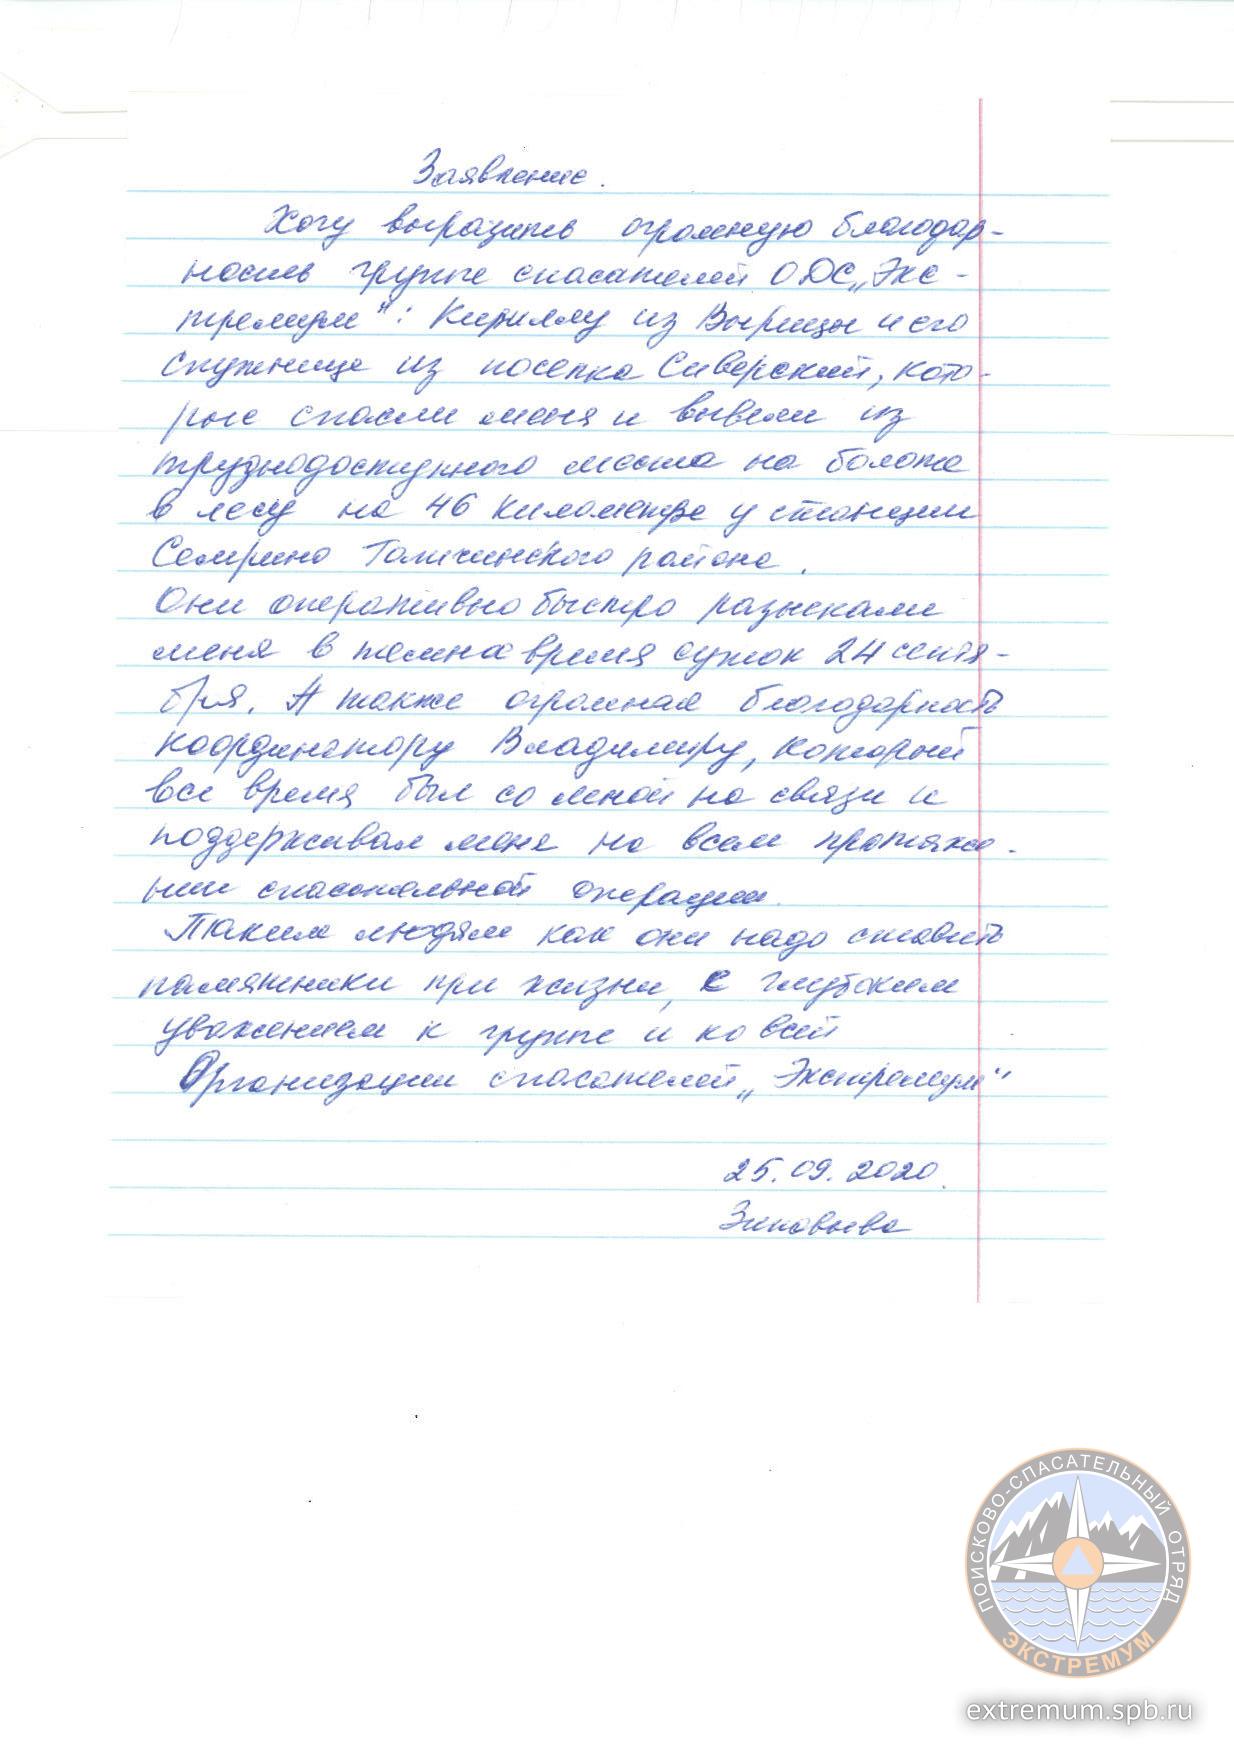 Заявление.
Хочу выразить огромную благодар-
ность группе спасателей ОДС „Экс-
тремум": Кириллу из Вырицы и его
спутнице из поселка Сиверский, кото-
рые спасли меня и вывели из
труднодоступного места на болоте
в лесу на 46 километре у станции
Семрино Гатчинского района.
Они оперативно быстро разыскали
меня в темна время суток 24 сентя-
бря. А также огромная благодарность
координатору Владимиру, который
все время был со мной на связи и
поддерживал меня на всем протяже-
нии спасательной операции.
Таким людям как они надо ставить
памятники при жизни, с глубоким
уважением к группе и ко всей
Организации спасателей „Экстремум"
25.09.2020.
Зиновьева
ПОИСКОВО-СПАСАТЕЛЬНЫЙ ОТРЯД
ЭКСТРЕМУМ
extremum.spb.ru